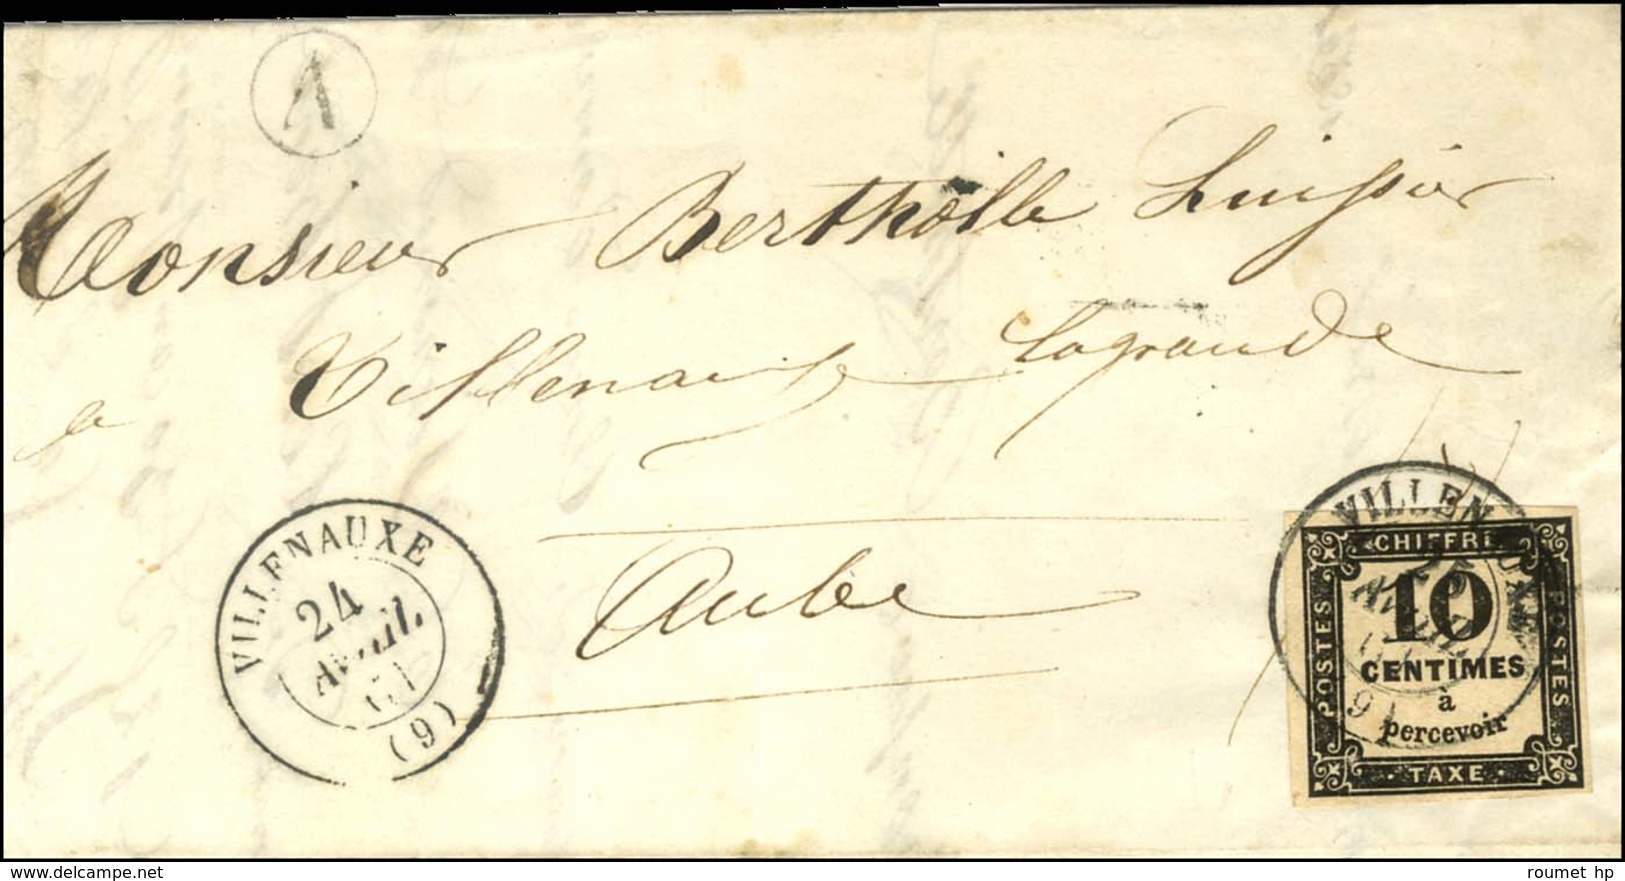 A
Monsieur Bertholle huissier
a Villenauxe lagrande
Aube
VILLENAUXE
24
AVRIL
61
(9)
VILLENAUXE
25
AVRIL
(9)
CHIFFRE
10
CENTIMES
à
percevoir
POSTES
POSTES
TAXE
delcampe.net
roumet hp